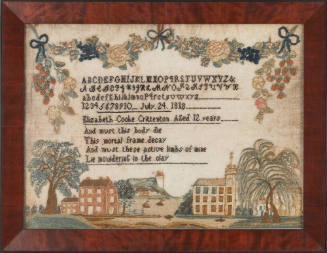 ABCDEFGHIJKLMNOPQRSTUVWXYZ&
abcdefghiklmnopqrstuvwxyz
12345678910 July 24. 1818
Elizabeth Cooke Crittenton Aged 12 years
And must this body die
This mortal frame decay
And must these active limbs of mine
Lie mouldering in the clay